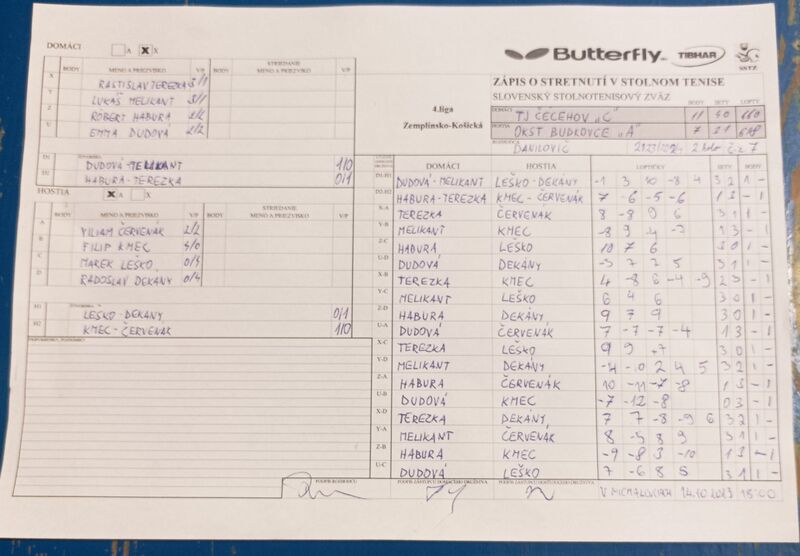 DOMÁCI A X X
Butterfly TIBHAR SSTZ
BODY MENO A PRIEZVISKO V/P BODY STRIEDANIE MENO A PRIEZVISKO V/P
ZÁPIS O STRETNUTÍ V STOLNOM TENISE
SLOVENSKÝ STOLNOTENISOVÝ ZVÄZ
X RASTISLAV TEREZKA 3/1
Y LUKÁŠ MELIKANT 3/1
Z RÓBERT HABURA 2/2
U EMMA DUDOVÁ 2/2
4.liga
Zemplínsko-Košická
BODY SETY LOPTY
DOMÁCI TJ ČEČEHOV "C" 11
HOSTIA OKST BUDKOVCE "A" 7
ROZHODCA DANILOVIČ 2023/2024 2 kolo č.z 7
D1 DUDOVÁ-MELIKANT 1/0
D2 HABURA-TEREZKA 0/1
HOSTIA X A X
BODY MENO A PRIEZVISKO V/P BODY STRIEDANIE MENO A PRIEZVISKO V/P
A VILIAM ČERVENÁK 2/2
B FILIP KMEC 4/0
C MAREK LEŠKO 0/4
D RADOSLAV DEKÁNY 0/4
H1 LEŠKO DEKÁNY 0/1
H2 KMEC-ČERVENÁK 1/0
DOMÁCI HOSTIA LOPTIČKY SETY BODY
D1-H1 DUDOVÁ-MELIKANT LEŠKO-DEKÁNY -1 3 10 -8 4 3 2 1 -
D2-H2 HABURA-TEREZKA KMEC-ČERVENÁK 7 -6 -5 -6 1 3 - 1
X-A TEREZKA ČERVENÁK 8 -8 9 6 3 1 1 -
Y-B MELIKANT KMEC -8 9 -4 -7 1 3 - 1
Z-C HABURA LEŠKO 10 7 6 3 0 1 -
U-D DUDOVÁ DEKÁNY -3 7 2 5 3 1 1 -
X-B TEREZKA KMEC 4 -8 6 -4 -9 2 3 - 1
Y-C MELIKANT LEŠKO 6 4 6 3 0 1 -
Z-D HABURA DEKÁNY 9 7 9 3 0 1 -
U-A DUDOVÁ ČERVENÁK 7 -7 -7 -4 1 3 - 1
X-C TEREZKA LEŠKO 9 9 7 3 0 1 -
Y-D MELIKANT DEKÁNY -4 -10 2 4 5 3 2 1 -
Z-A HABURA ČERVENÁK 10 -11 -7 -8 1 3 - 1
U-B DUDOVÁ KMEC -7 -12 -8 0 3 - 1
X-D TEREZKA DEKÁNY 7 7 -8 -9 6 3 2 1 -
Y-A MELIKANT ČERVENÁK 8 -5 8 9 3 1 1 -
Z-B HABURA KMEC -9 -8 3 -10 1 3 - 1
U-C DUDOVÁ LEŠKO 7 -6 8 5 3 1 1 -
PODPIS ROZHODCU PODPIS ZÁSTUPCU DOMÁCEHO DRUŽSTVA PODPIS ZÁSTUPCU HOSŤUJÚCEHO DRUŽSTVA
V MICHALOVCIACH 14.10.2023 18:00